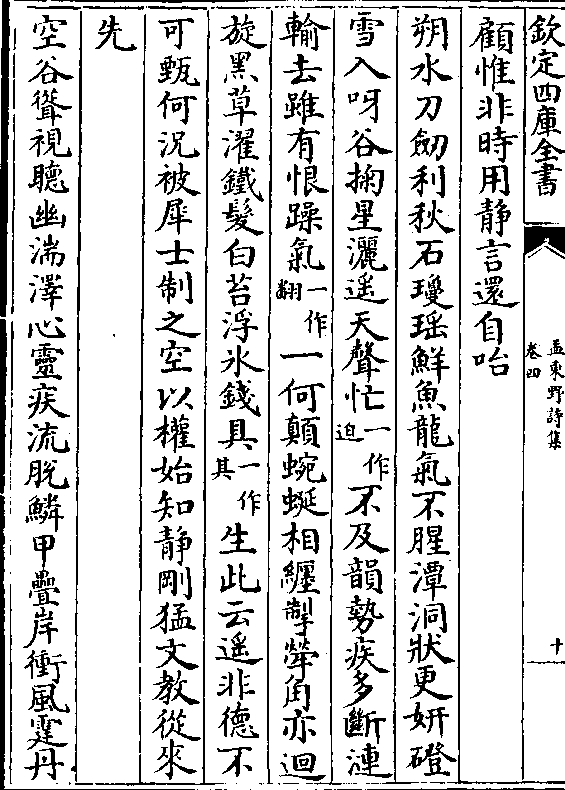 欽定四庫全書
孟東野詩集
卷四
十
顧惟非時用静言還自咍
朔水刀劒利秋石瓊瑶鮮魚龍氣不腥潭洞狀更妍磴
雪入呀谷掬星灑遥天聲忙一作迫不及韻勢疾多斷漣
輸去雖有恨躁氣一作翻一何顛蜿蜒相纒掣犖角亦迴
旋黑草濯鐵髮白苔浮氷錢具一作其生此云遥非德不
可甄何況被犀士制之空以權始知静剛猛文教從來
先
空谷聳視聽幽湍澤心靈疾流脱鱗甲疊岸衝風霆丹